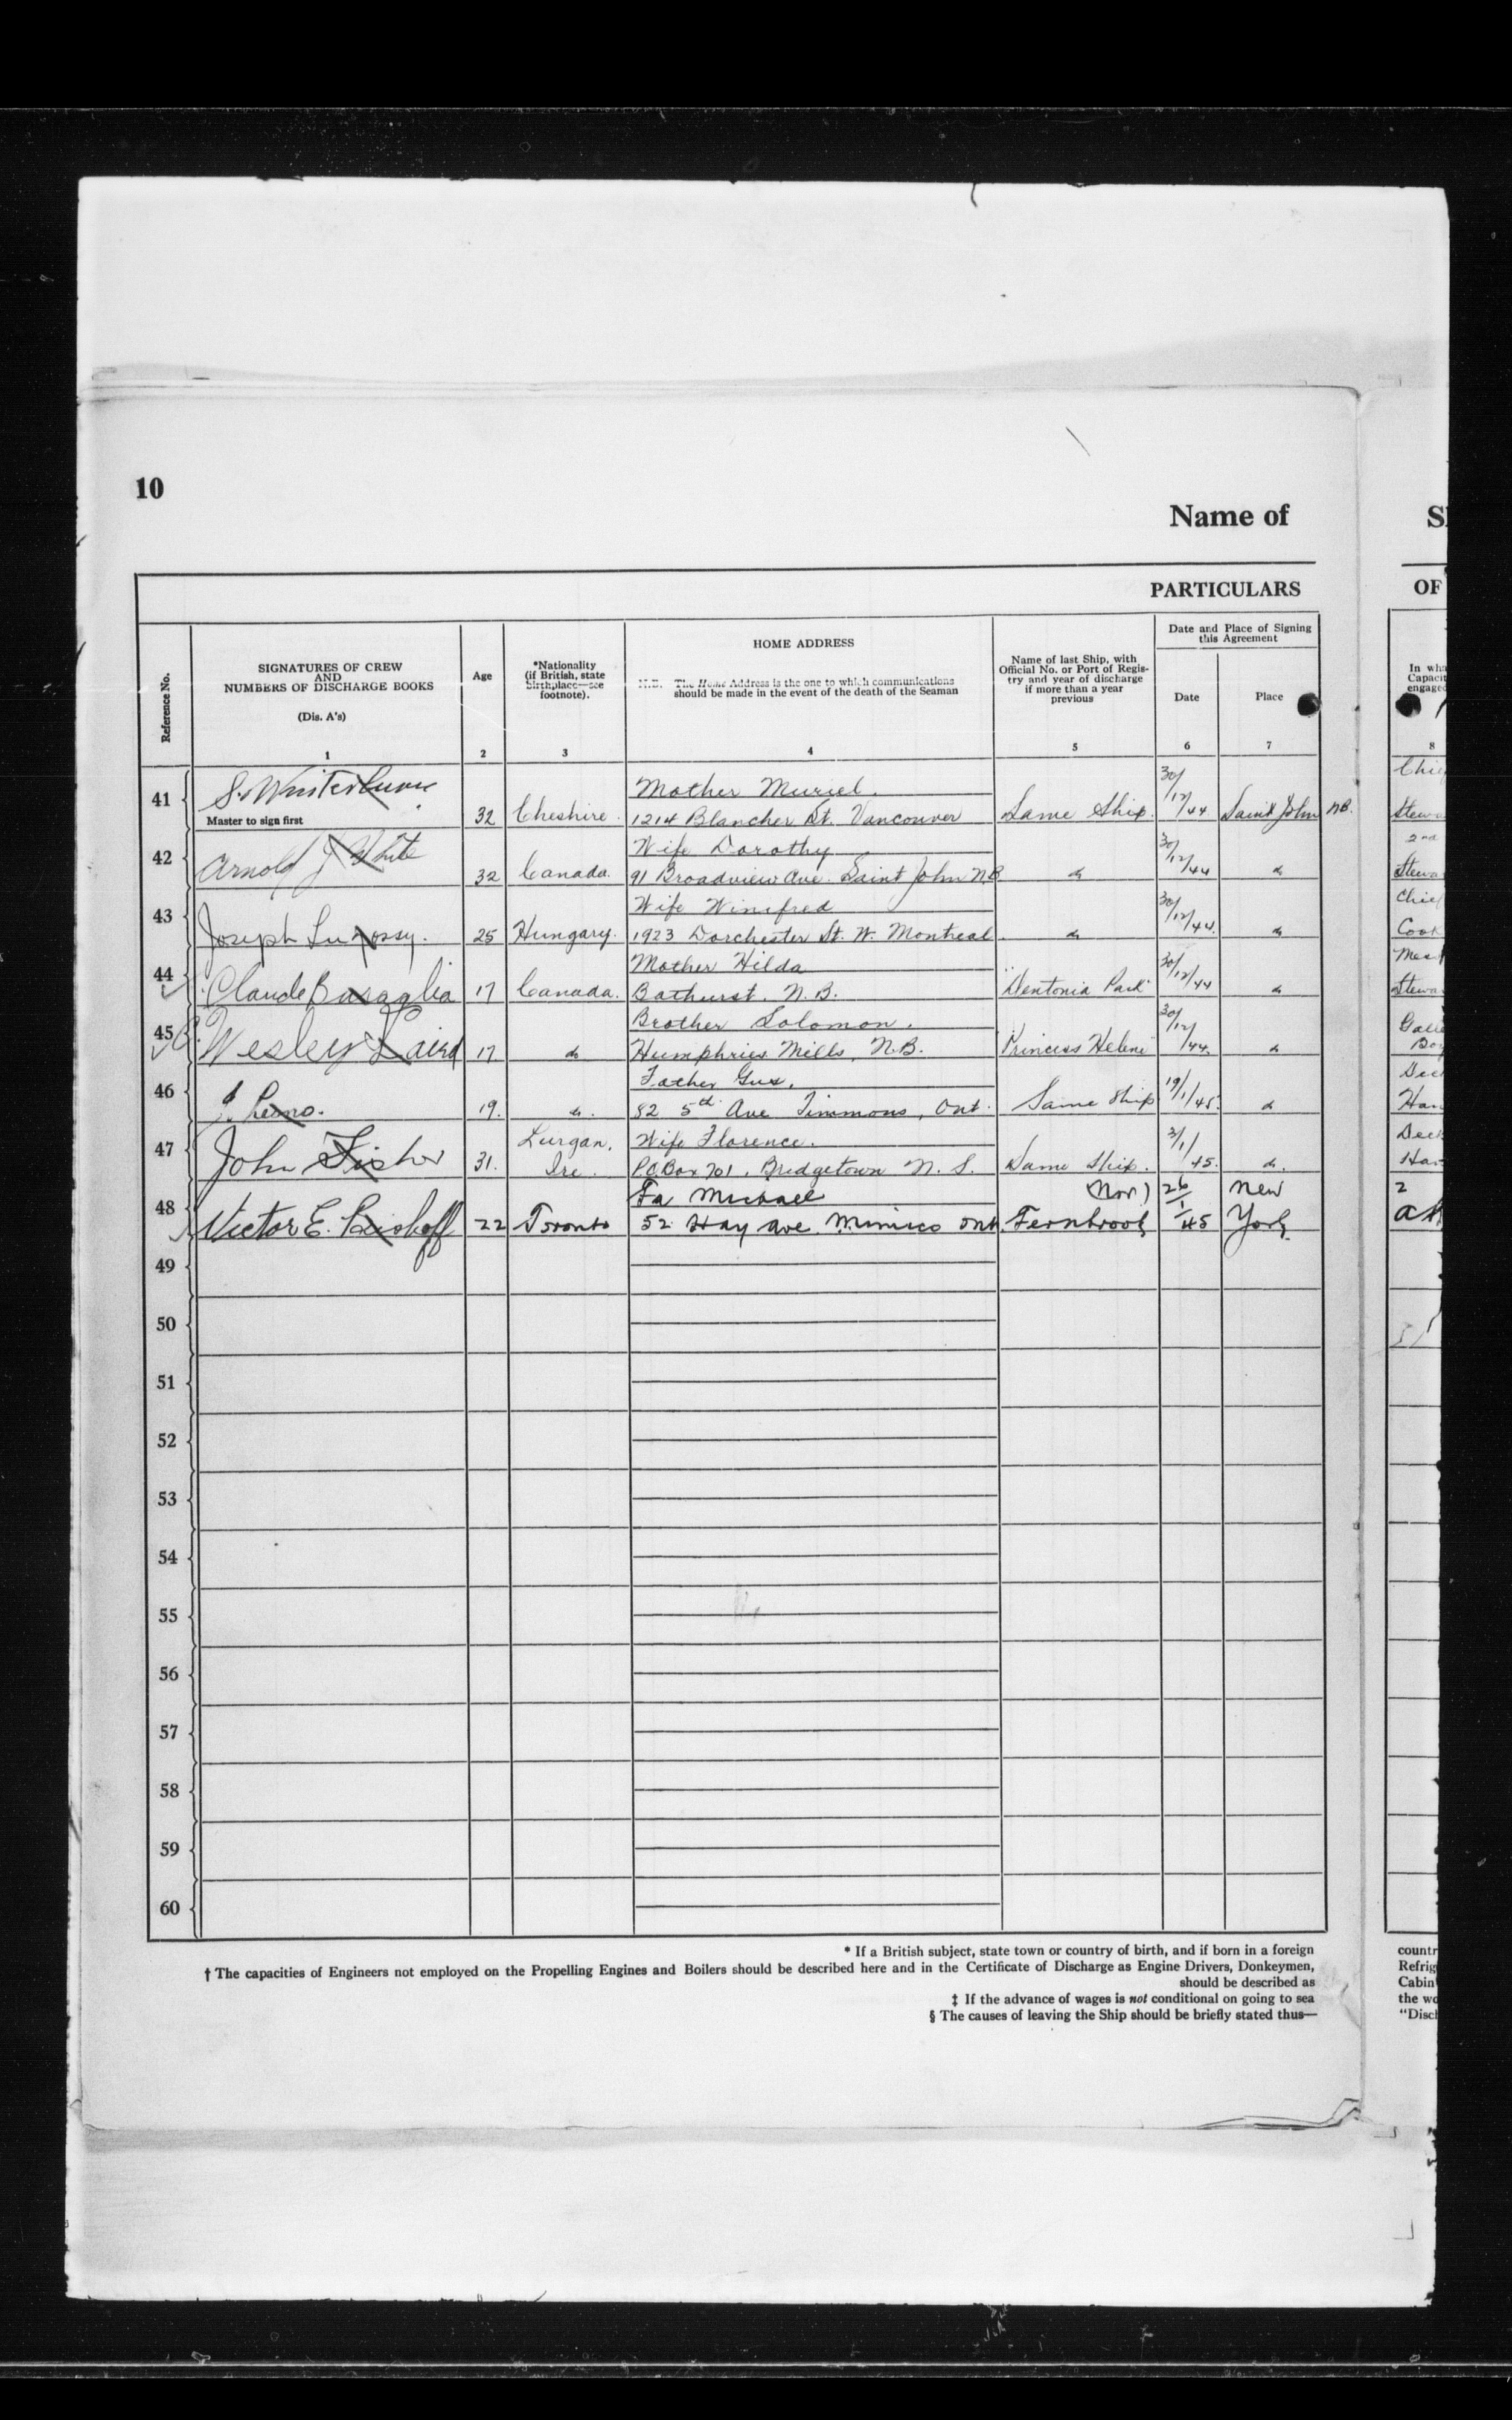 10
Name of
PARTICULARS
OF
Reference No.
SIGNATURES OF CREW
AND
NUMBERS OF DISCHARGE BOOKS
(Dis. A's)
1
Age
2
*Nationality
(if British, state
birthplace—see
footnote).
3
HOME ADDRESS
N.B. The Home Address is the one to which communications
should be made in the event of the death of the Seaman
4
Name of last Ship, with
Official No. or Port of Regis-
try and year of discharge
if more than a year
previous
5
Date and Place of Signing
this Agreement
Date
6
Place
7
8
41
Master to sign first
32 Cheshire.
Mother Muriel.
1214 Blancher St. Vancouver
Same Ship. 30/12/44 Saint John NB.
42 Arnold J White
32 Canada.
Wife Dorothy
91 Broadview Ave. Saint John NB
do 30/12/44 do
43 Joseph
25 Hungary.
Wife Winifred
1923 Dorchester St. W. Montreal.
do 30/12/44. do
44 Claude Basaglia 17 Canada.
Mother Hilda
Bathurst. N.B.
Dentonia Park 30/12/44 do
45 Wesley Laird 17 do
Brother Solomon.
Humphries Mills, N.B.
Princess Helene 30/12/44. do
46
19. do.
Father Gus.
82 5th Ave Timmons, Ont.
Same Ship 19/1/45. do
47 John Fisher 31.
Lurgan,
Ire.
Wife Florence.
P.O. Box 701, Bridgetown N.S.
Same Ship. 3/1/45. do.
48 Victor E. 22 Toronto
Fa Michael
52 Hay ave. Mimico Ont
(Nor)
Fernbrook 26/1/45
New
York.
49
50
51
52
53
54
55
56
57
58
59
60
* If a British subject, state town or country of birth, and if born in a foreign
† The capacities of Engineers not employed on the Propelling Engines and Boilers should be described here and in the Certificate of Discharge as Engine Drivers, Donkeymen,
should be described as
‡ If the advance of wages is not conditional on going to sea
§ The causes of leaving the Ship should be briefly stated thus—